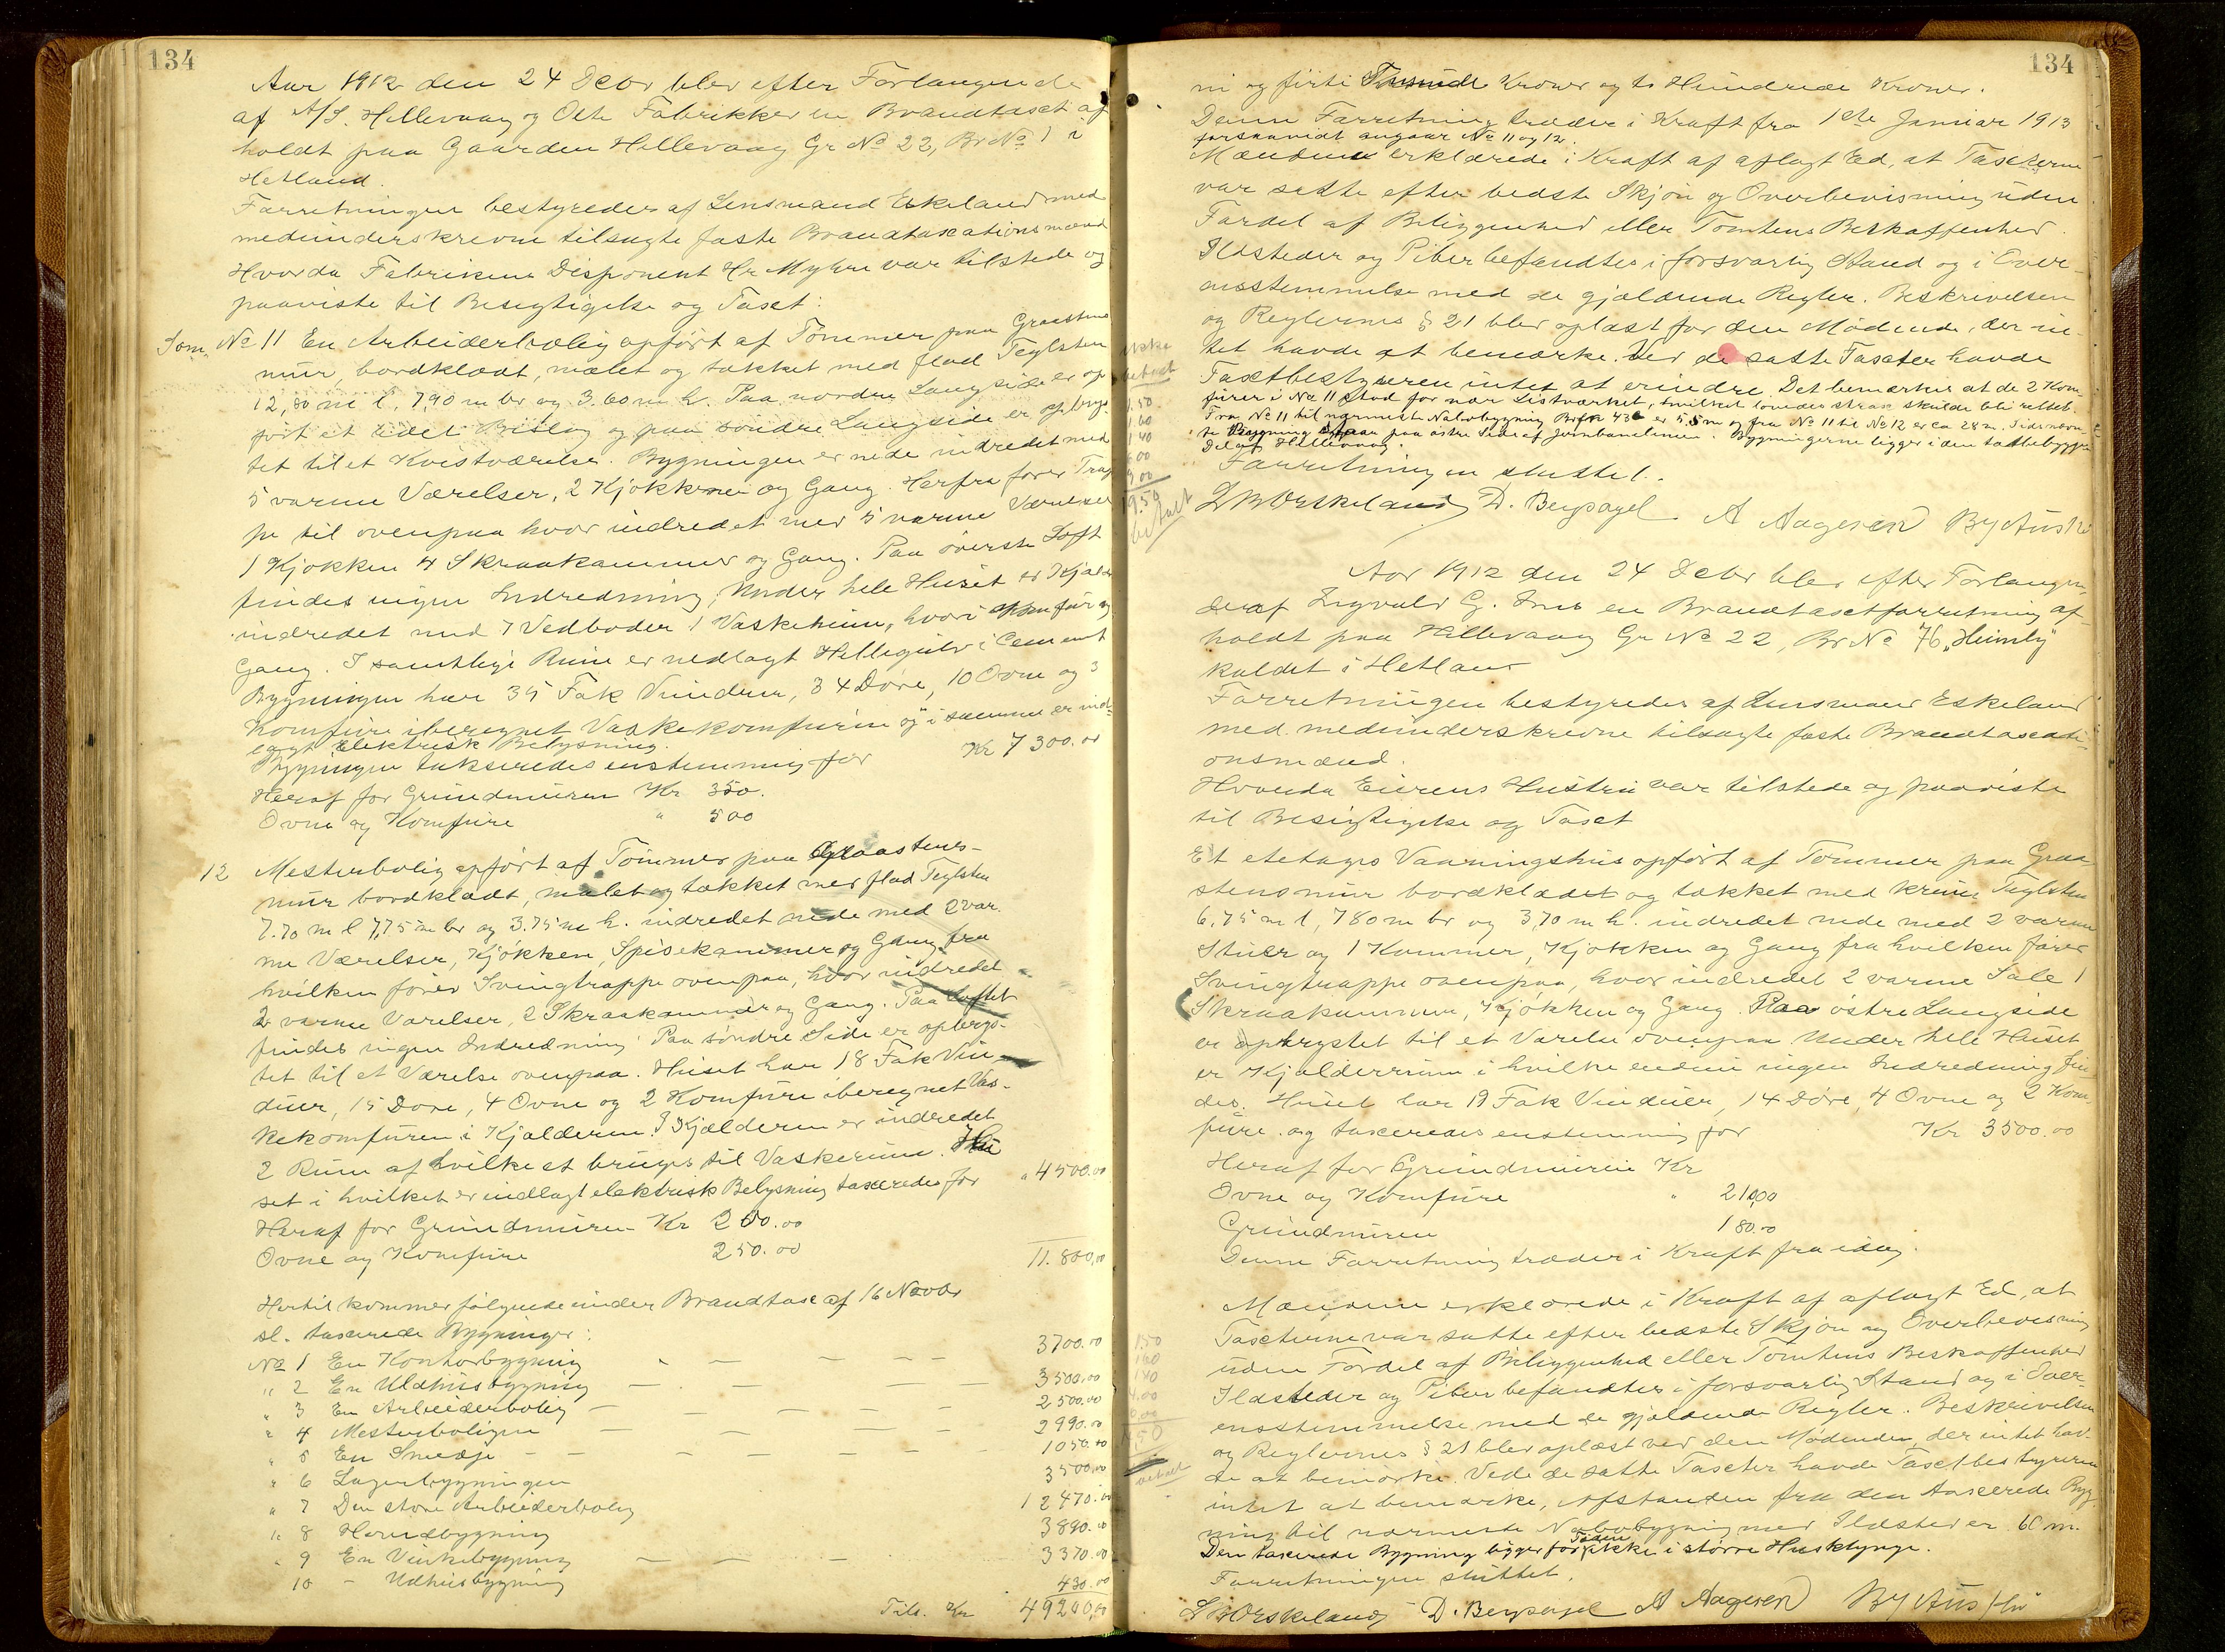 134
Aar 1912 den 24 Decbr blev efter Forlangende
af A/S. Hillevaag og Olte Fabrikker en Brandtaxt af
holdt paa Gaarden Hillevaag Gr No 22, Br No 1 i
Hetland.
Forretningen bestyredes af Lensmand Eskeland med
medunderskrevne tilsagte faste Brandtaxationsmænd
Hvorda Fabrikens Disponent Hr Myhre var tilstede og
paaviste til Besigtigelse og Taxt:
No 11 En Arbeiderbolig opført af Tømmer paa Graastens
mur, bordklædt, malet og tækket med flad Teglsten
12,80 m l, 7,90 m br og 3.60 m h. Paa nordre Langside er op
ført et lidet Bislag og paa søndre Langside er opbyg
tet til et Kvistværelse. Bygningen er nede indredet med
5 varme Værelser, 2 Kjøkkener og Gang. Herfra fører Trap
pe til ovenpaa hvor indredet med 5 varme Værelser
1 Kjøkken 4 Skraakammer og Gang. Paa øverste Loft
findes ingen Indredning. Under hele Huset er Kjæler
indredet med 7 Vedboder 1 Vaskerum, hvori Komfur og
Gang. I samtlige Rum er nedlagt Hellegulv i Cement
Bygningen har 35 Fak Vinduer, 34 Døre, 10 Ovne og 3
Komfure iberegnet Vaskekomfuren og i samme er ind-
lagt Elektrisk Belysning.
Bygningen takseredes enstemmig for Kr 7300.00
Heraf for Grundmuren Kr 350.
Ovne og Komfure " 500
12 Mesterbolig opført af Tømmer paa Graastens-
mur bordklædt, malet og tækket med flad Teglsten
7.70 m l 7,75 m br og 3.75 m h. indredet nede med 2 var.
me Værelser, Kjøkken, Spisekammer og Gang fra
hvilken fører Svingtrappe ovenpaa, hvor indredet
2 varme Værelser, 2 Skraakammer og Gang. Paa Loftet
findes ingen Indredning. Paa søndre Side er opbyg-
tet til et Værelse ovenpaa. Huset har 18 Fak Vin-
duer, 15 Døre, 4 Ovne og 2 Komfure iberegnet Vas-
kekomfuren i Kjælderen. I Kjælderen er indredet
2 Rum af hvilke et bruges til Vaskerum. Hu
set i hvilket er indlagt elektrisk Belysning taxeredes for " 4500.00
Heraf for Grundmuren Kr 200.00
Ovne og Komfure 250.00
11.800,00
Hertil kommer følgende under Brandtaxt af 16 Novbr
sl. taxerede Bygninger:
No 1 En Kontorbygning 3700.00
" 2 En Uldhusbygning 3500.00
" 3 En Arbeiderbolig 2500.00
" 4 Mesterboligen 2990.00
" 5 En Smedje 1050.00
" 6 Lagerbygningen 3500.00
" 7 Den store Arbeiderbolig 12470.00
" 8 Hovedbygning 3890.00
" 9 En bygning 3370.00
10 - Udhusbygning 430.00
Tils. Kr 49200,00
134
ni og firti Tusinde Kroner og to Hundrede Kroner.
Denne Forretning træder i Kraft fra 1ste Januar 1913
forsaavidt angaar No 11 og 12.
Mændene erklærede i Kraft af aflagt Ed, at Taxterne
var satte efter bedste Skjøn og Overbevisning uden
Fordel af Beliggenhed eller Tomtens Beskaffenhed.
Ildsteder og Piber befandtes i forsvarlig Stand og i Over-
ensstemmelse med de gjældende Regler. Beskrivelsen
og Reglernes § 21 blev oplæst for den Mødende, der in-
tet havde at bemærke. Ved de satte Taxter havde
Taxtbestyreren intet at erindre. Det bemærkes at de 2 Kom-
furer i No 11 stod for nær Listværket, hvilket lovedes strax skulde bli rettet.
Fra No 11 til nærmeste Nabobygning Br 436 er 5.5 m og fra No 11 til No 12 er ca 28 m. Sidsnævn
te Bygning staar paa østre Side af Jernbanelinien. Bygningerne ligger i den tætbebygge
Del af Hillevaag.
Forretningen sluttet.
L B Eskeland D. Bergsagel A Aagesen
Aar 1912 den 24 Decbr blev efter Forlangen-
de af Ingvald G. en Brandtaxtforretning af-
holdt paa Hillevaag Gr No 22, Br No 76 "Heimly"
kaldet i Hetland
Forretningen bestyredes af Lensmand Eskeland
med medunderskrevne tilsagte faste Brandtaxati-
onsmænd.
Hvorda Eierens Hustru var tilstede og paaviste
til Besigtigelse og Taxt
Et etetages Vaaningshus opført af Tømmer paa Graa-
stensmur bordklædet og tækket med krum Teglsten
6,75 m l, 780 m br og 3,70 m h. indredet nede med 2 varme
Stuer og 1 Kammer, Kjøkken og Gang fra hvilken fører
Svingtrappe ovenpaa, hvor indredet 2 varme Sale 1
Skraakammer, Kjøkken og Gang. Paa østre Langside
er opbygtet til et Værelse ovenpaa Under hele Huset
er Kjælderrum i hvilke endnu ingen Indredning fin
des. Huset har 19 Fak Vinduer, 14 Døre, 4 Ovne og 2 Kom-
fure. og taxeredes enstemmig for Kr 3500.00
Heraf for Grundmuren Kr
Ovne og Komfure " 210,00
Grundmuren 180.00
Denne Forretning træder i Kraft fra idag.
Mændene erklærede i Kraft af aflagt Ed, at
Taxterne var satte efter bedste Skjøn og Overbevisning
uden Fordel af Beliggenhed eller Tomtens Beskaffenhed
Ildsteder og Piber befandtes i forsvarlig Stand og i Over-
ensstemmelse med de gjældende Regler. Beskrivelsen
og Reglernes § 21 blev oplæst ved den Mødende, der intet hav-
de at bemærke. Vede de satte Taxter havde Taxtbestyreren
intet at bemærke, Afstanden fra den taxerede Byg
ning til nærmeste Nabobygning med Ildsted er 60 m.
Den taxerede Bygning ligger for Tiden ikke i større Husklynge.
Forretningen sluttet.
L B Eskeland D. Bergsagel A Aagesen